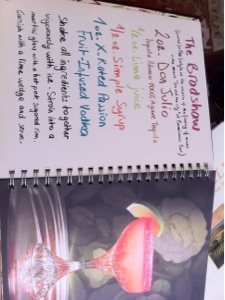 The Bradshow
2 oz. Don Julio
Tequila Blanco 100% Agave Tequila
1/2 oz. Lime juice
1/2 oz Simple Syrup
1 oz. X-Rated Passion
Fruit-Infused Vodka
Shake all ingredients together
vigorously with ice. Strain into a
martini glass with a hot pink sugared rim.
Garnish with a lime wedge and serve.